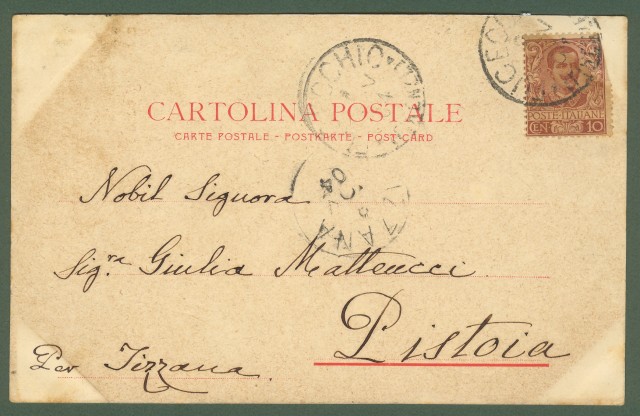 CARTOLINA POSTALE
CARTE POSTALE - POSTKARTE - POST-CARD
POSTE ITALIANE
CENT 10
Nobil Signora
Sig.ra Giulia Matteucci
Pistoia
Per Tizzana